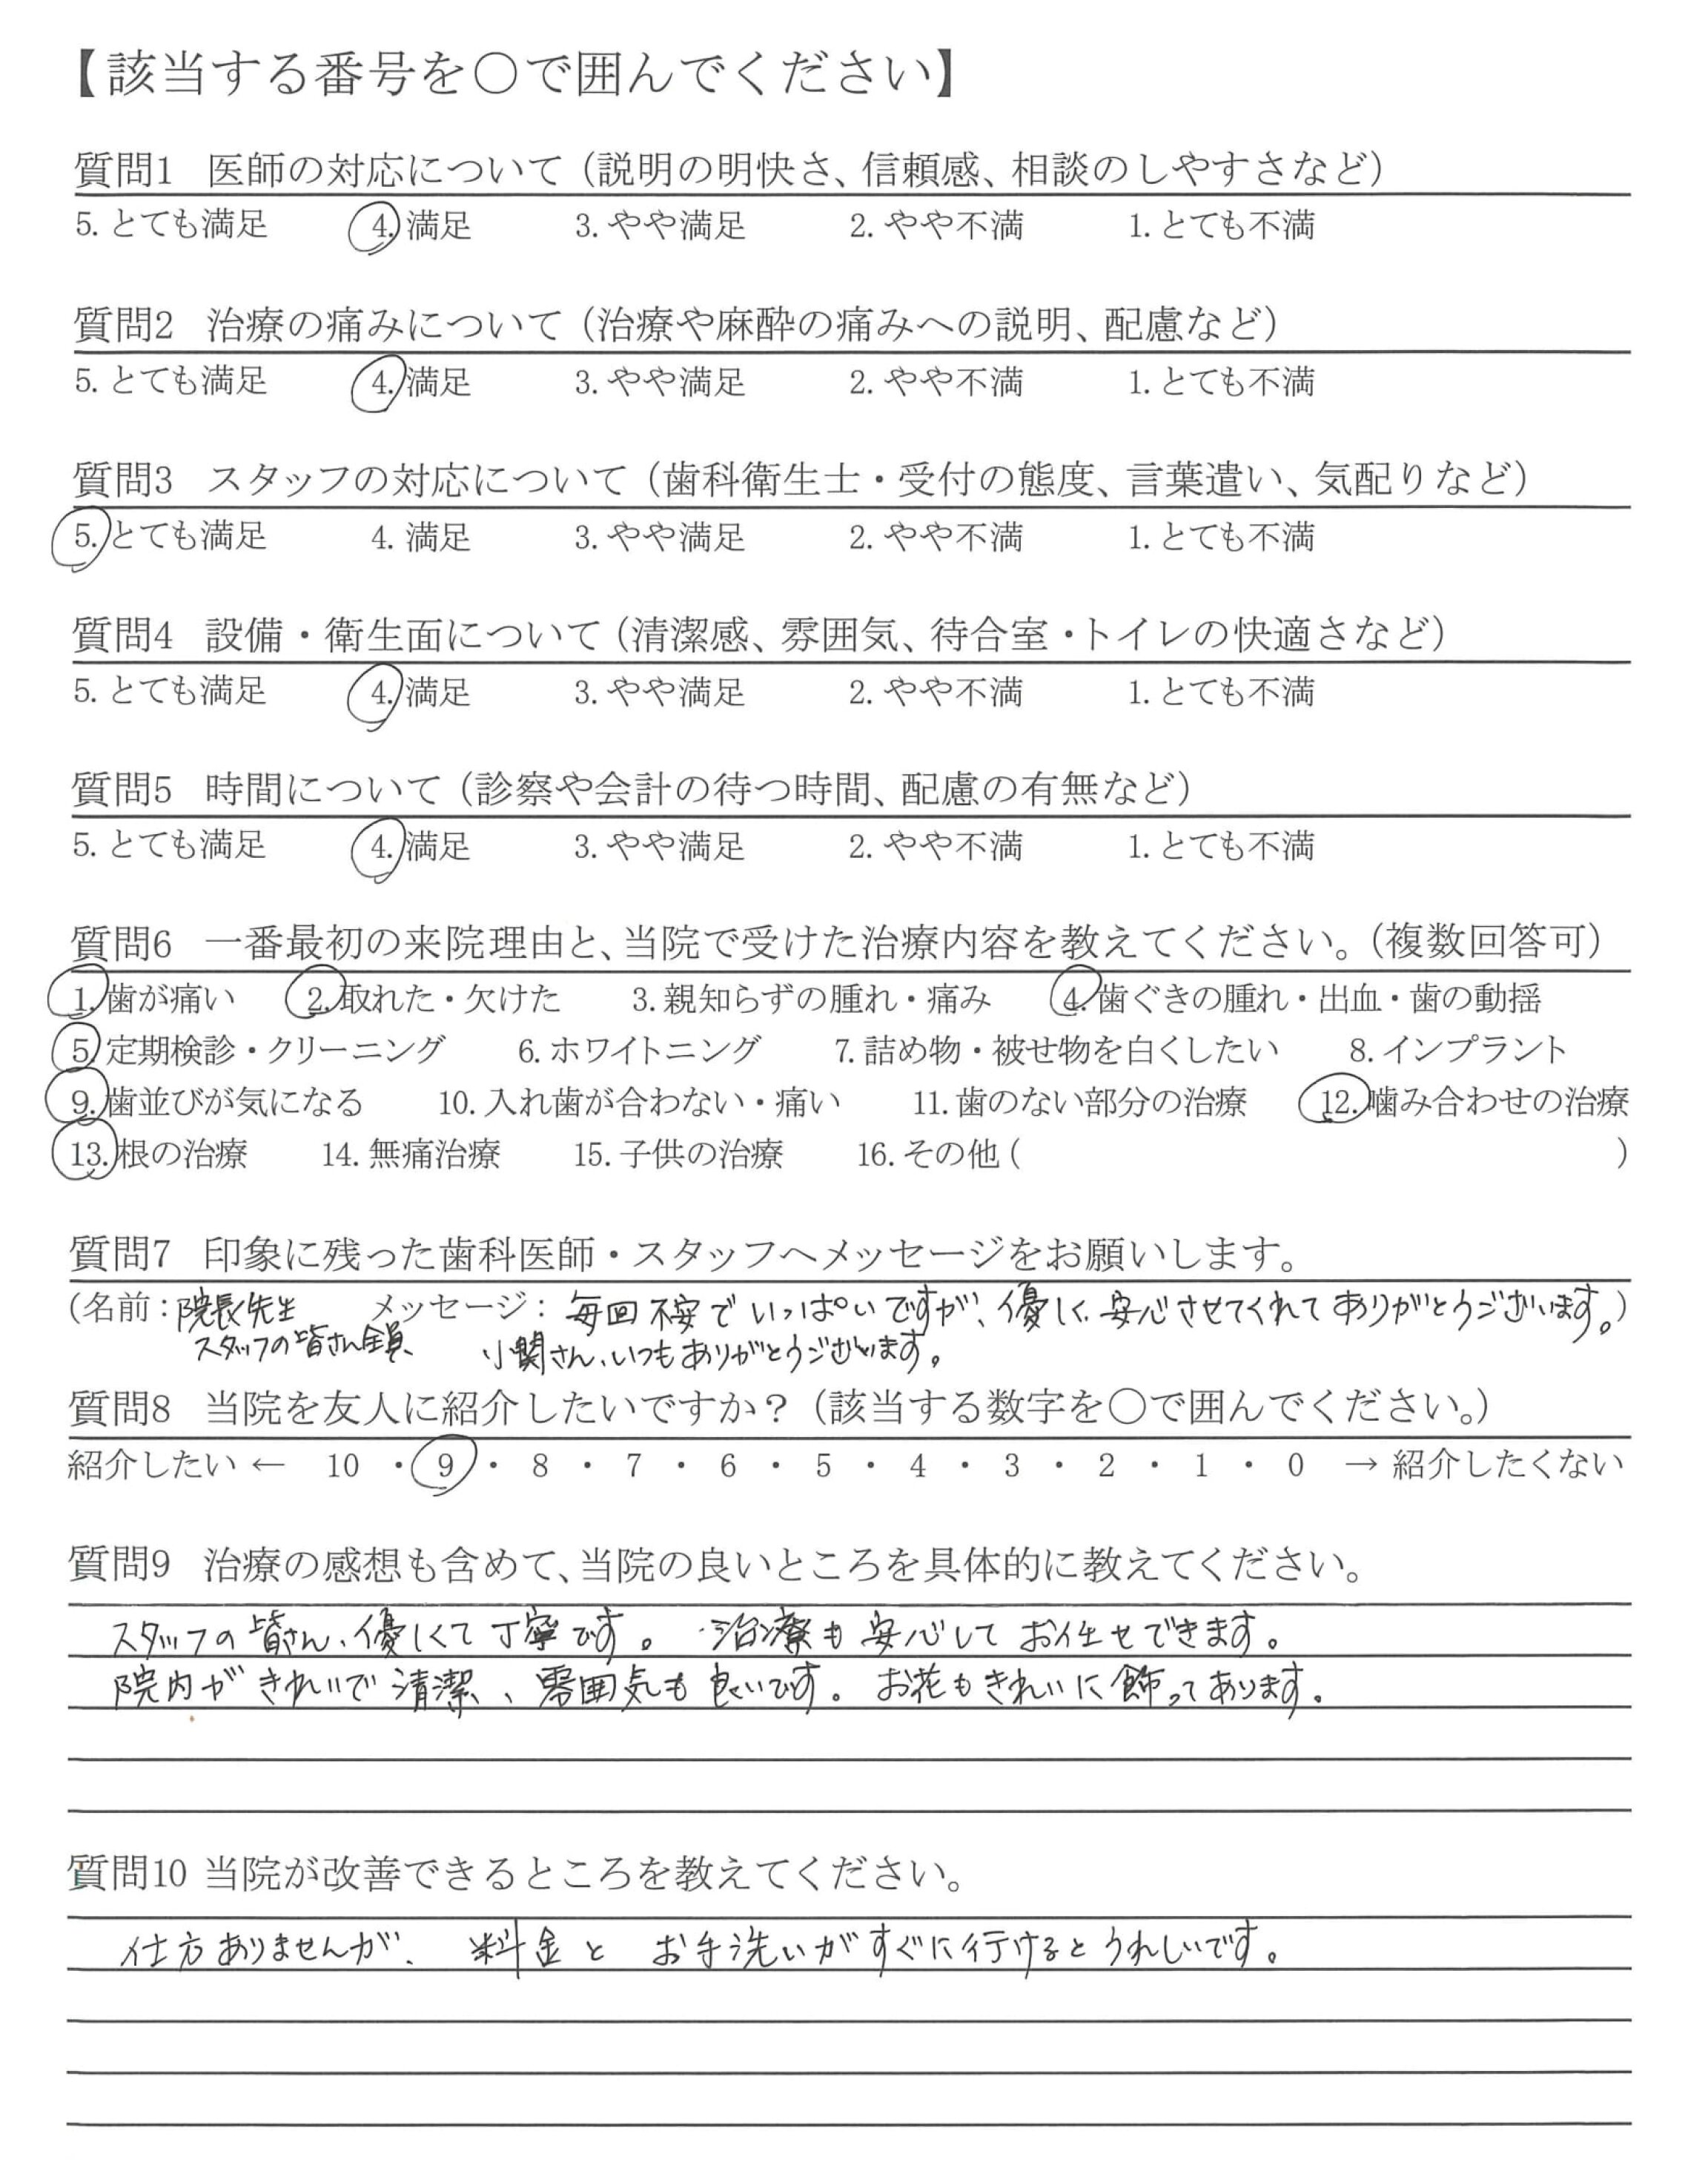 【該当する番号を○で囲んでください】
質問1 医師の対応について（説明の明快さ、信頼感、相談のしやすさなど）
5. とても満足 4. 満足 3. やや満足 2. やや不満 1. とても不満
質問2 治療の痛みについて（治療や麻酔の痛みへの説明、配慮など）
5. とても満足 4. 満足 3. やや満足 2. やや不満 1. とても不満
質問3 スタッフの対応について（歯科衛生士・受付の態度、言葉遣い、気配りなど）
5. とても満足 4. 満足 3. やや満足 2. やや不満 1. とても不満
質問4 設備・衛生面について（清潔感、雰囲気、待合室・トイレの快適さなど）
5. とても満足 4. 満足 3. やや満足 2. やや不満 1. とても不満
質問5 時間について（診察や会計の待つ時間、配慮の有無など）
5. とても満足 4. 満足 3. やや満足 2. やや不満 1. とても不満
質問6 一番最初の来院理由と、当院で受けた治療内容を教えてください。（複数回答可）
1. 歯が痛い 2. 取れた・欠けた 3. 親知らずの腫れ・痛み 4. 歯ぐきの腫れ・出血・歯の動揺
5. 定期検診・クリーニング 6. ホワイトニング 7. 詰め物・被せ物を白くしたい 8. インプラント
9. 歯並びが気になる 10. 入れ歯が合わない・痛い 11. 歯のない部分の治療 12. 噛み合わせの治療
13. 根の治療 14. 無痛治療 15. 子供の治療 16. その他 ( )
質問7 印象に残った歯科医師・スタッフへメッセージをお願いします。
（名前：院長先生 メッセージ：毎回不安でいっぱいですが、優しく、安心させてくれてありがとうございます。）
スタッフの皆さん全員 小関さん、いつもありがとうございます。
質問8 当院を友人に紹介したいですか？（該当する数字を○で囲んでください。）
紹介したい ← 10 ・ 9 ・ 8 ・ 7 ・ 6 ・ 5 ・ 4 ・ 3 ・ 2 ・ 1 ・ 0 → 紹介したくない
質問9 治療の感想も含めて、当院の良いところを具体的に教えてください。
スタッフの皆さん、優しくて丁寧です。治療も安心してお任せできます。
院内がきれいで清潔、雰囲気も良いです。お花もきれいに飾ってあります。
質問10 当院が改善できるところを教えてください。
仕方ありませんが、料金とお手洗いがすぐに行けるとうれしいです。